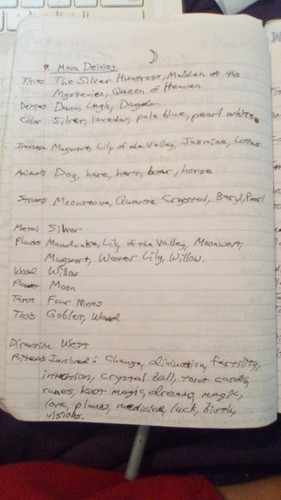 Moon Deities
Titles The Silver Huntress, Maiden of the
Mysteries, Queen of Heaven
Deities Danu, Lugh, Dagda
Color Silver, lavender, pale blue, pearl white
Incense Mugwort, Lily of the Valley, Jasmine, Lotus
Animals Dog, hare, hart, boar, horse
Stones Moonstone, Quartz Crystal, Beryl, Pearl
Metal Silver
Plants Mandrake, Lily of the Valley, Moonwort,
Mugwort, Water Lily, Willow.
Wood Willow
Planet Moon
Tarot Four Nines
Tools Goblet,
Direction West
Rituals Involved: Change, divination, fertility,
intuition, crystal ball, tarot cards,
runes, knot magic, dreams, magic,
love, plants, medicine, luck, birth,
visions.